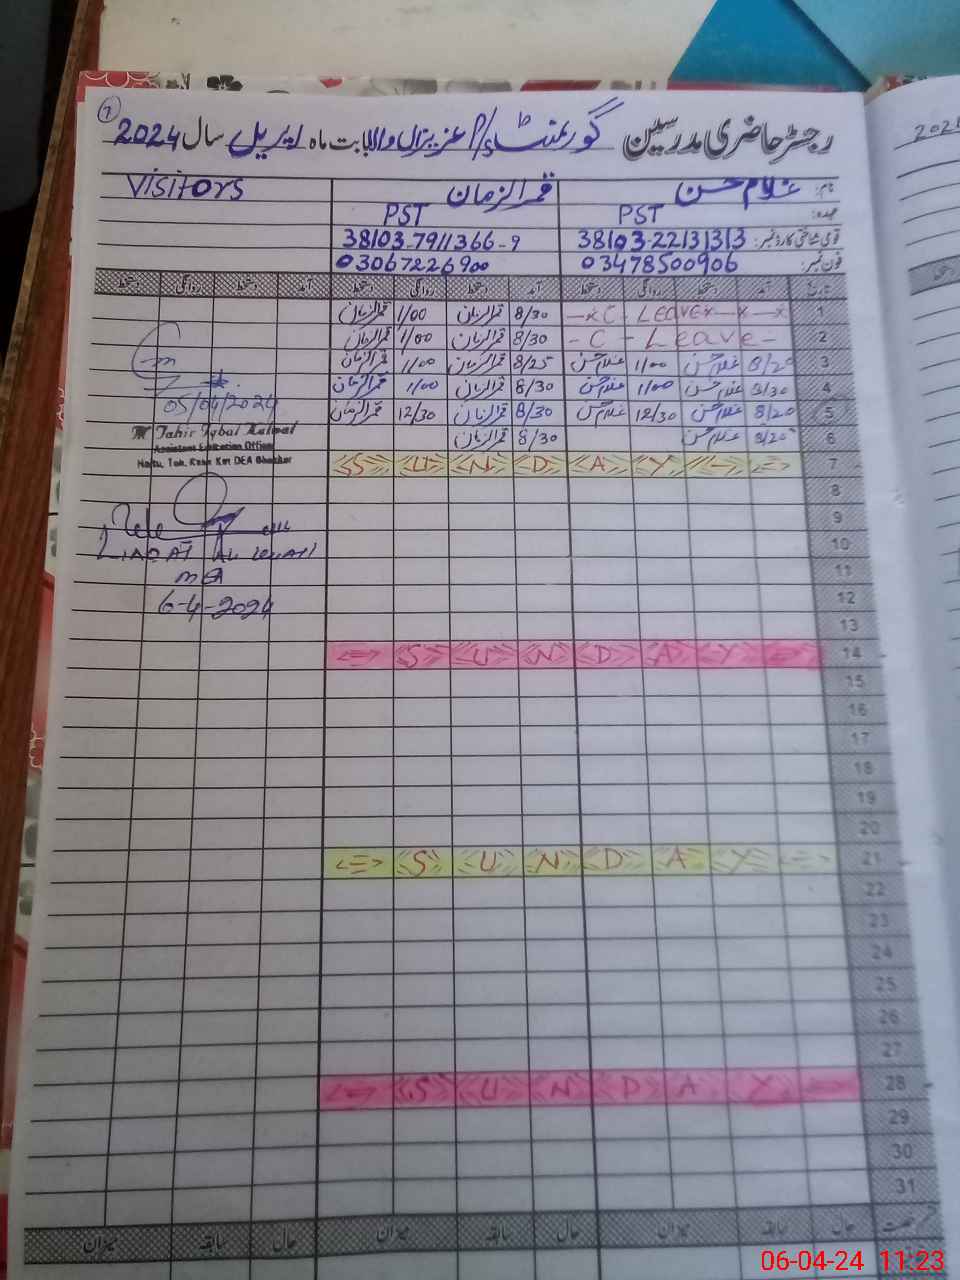 7
رجسٹر حاضری مدرسین گورنمنٹ P/S عزیزاں والا بابت ماہ اپریل سال 2024
2024
نام: غلام حسن قمر الزمان VISITORS
عہدہ: PST PST
قومی شناختی کارڈ نمبر: 38103-2213131-3 38103-7911366-9
فون نمبر: 03478500906 03067226900
تاریخ آمد دستخط روانگی دستخط آمد دستخط روانگی دستخط آمد دستخط روانگی دستخط
1 -x C - LEAVE x - x - x 8/30 قمر الزمان 1/00 قمر الزمان
2 - C - Leave - 8/30 قمر الزمان 1/00 قمر الزمان
3 8/20 غلام حسن 1/00 غلام حسن 8/25 قمر الزمان 1/00 قمر الزمان
4 8/30 غلام حسن 1/00 غلام حسن 8/30 قمر الزمان 1/00 قمر الزمان
5 8/20 غلام حسن 12/30 غلام حسن 8/30 قمر الزمان 12/30 قمر الزمان
05/04/2024
6 8/20 غلام حسن 8/30 قمر الزمان
M Tahir Iqbal
Assistant Education Officer
7 S U N D A Y
8
9
10
LIAQAT ALI
11
MEA
12
6-4-2024
13
14 S U N D A Y
15
16
17
18
19
20
21 S U N D A Y
22
23
24
25
26
27
28 S U N D A Y
29
30
31
رخصت حال سابقہ میزان حال سابقہ میزان حال سابقہ میزان
06-04-24 11:23